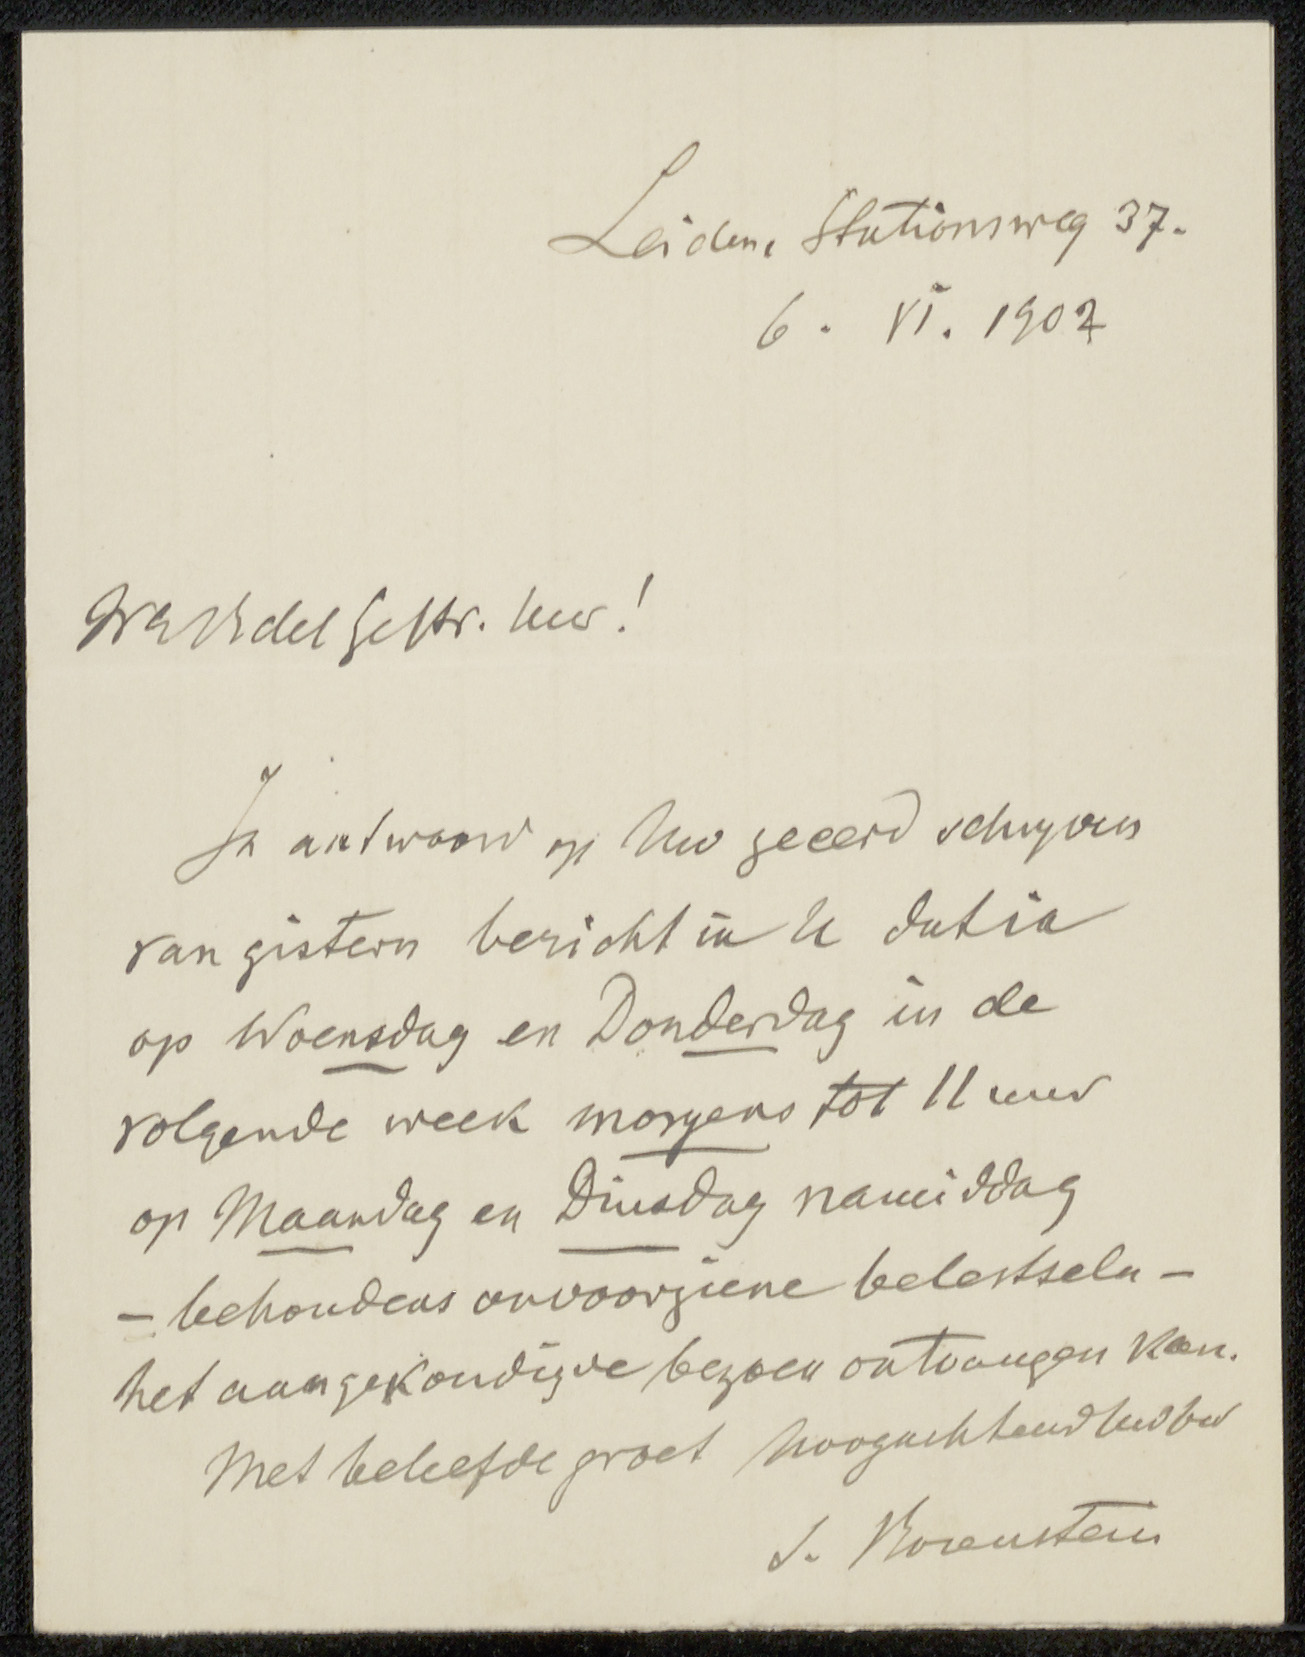 Leiden, Stationsweg 37.
6. VI. 1902
WelEdelGestr. Heer!
In antwoord op Uw geeerd schryven
van gistern bericht ik U dat ik
op Woensdag en Donderdag in de
volgende week morgens tot 11 uur
op Maandag en Dinsdag namiddag
- behoudens onvoorziene beletseln -
het aangekondigde bezoek ontvangen kan.
Met beleefde groet hoogachtend
S. Rosenstein